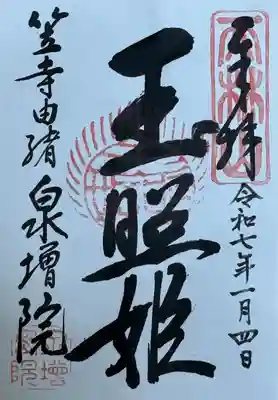 奉拝
令和七年一月四日
玉照姫
笠寺由緒
泉増院